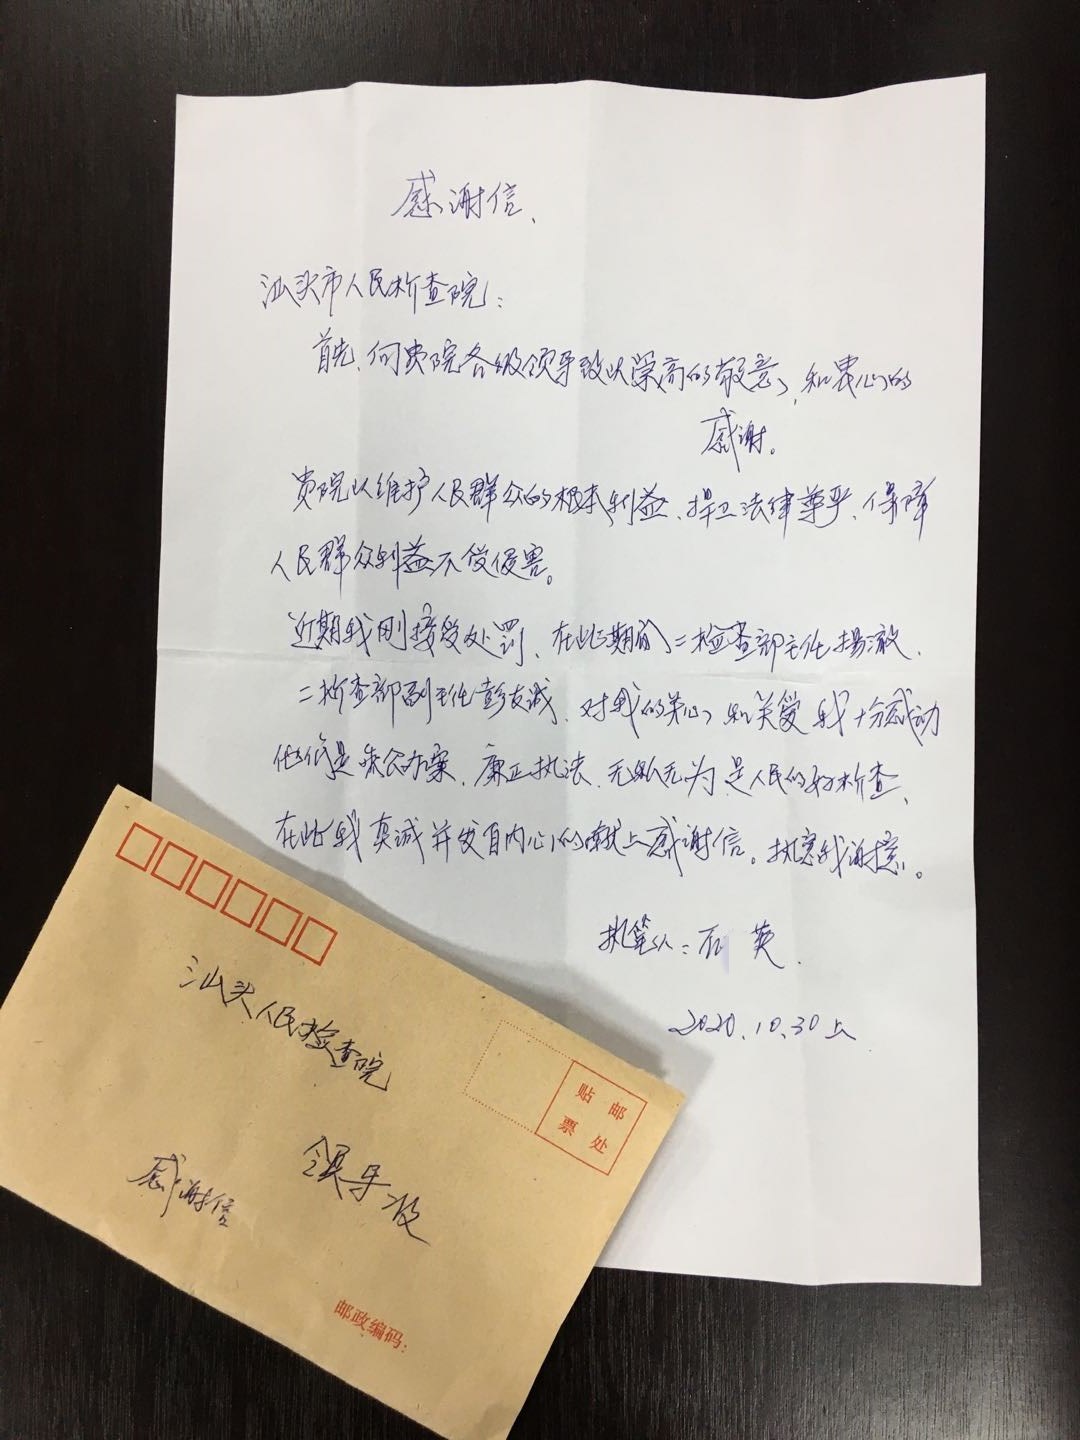 感谢信、
汕头市人民检查院：
首先、向贵院各级领导致以崇高的敬意、和衷心的
感谢。
贵院以维护人民群众的根本利益、捍卫法律尊严、保障
人民群众利益不受侵害。
近期我刚接受处罚、在此期间二检查部主任杨澈、
二检查部副主任彭友诚、对我的关心和关爱我十分感动
他们是秉公办案、廉正执法、无私无为是人民的好检查、
在此我真诚并发自内心的献上感谢信。执意我谢意。
执笔人：石 英
2020.10.30上
汕头人民检查院
领导收
感谢信
贴邮
票处
邮政编码：